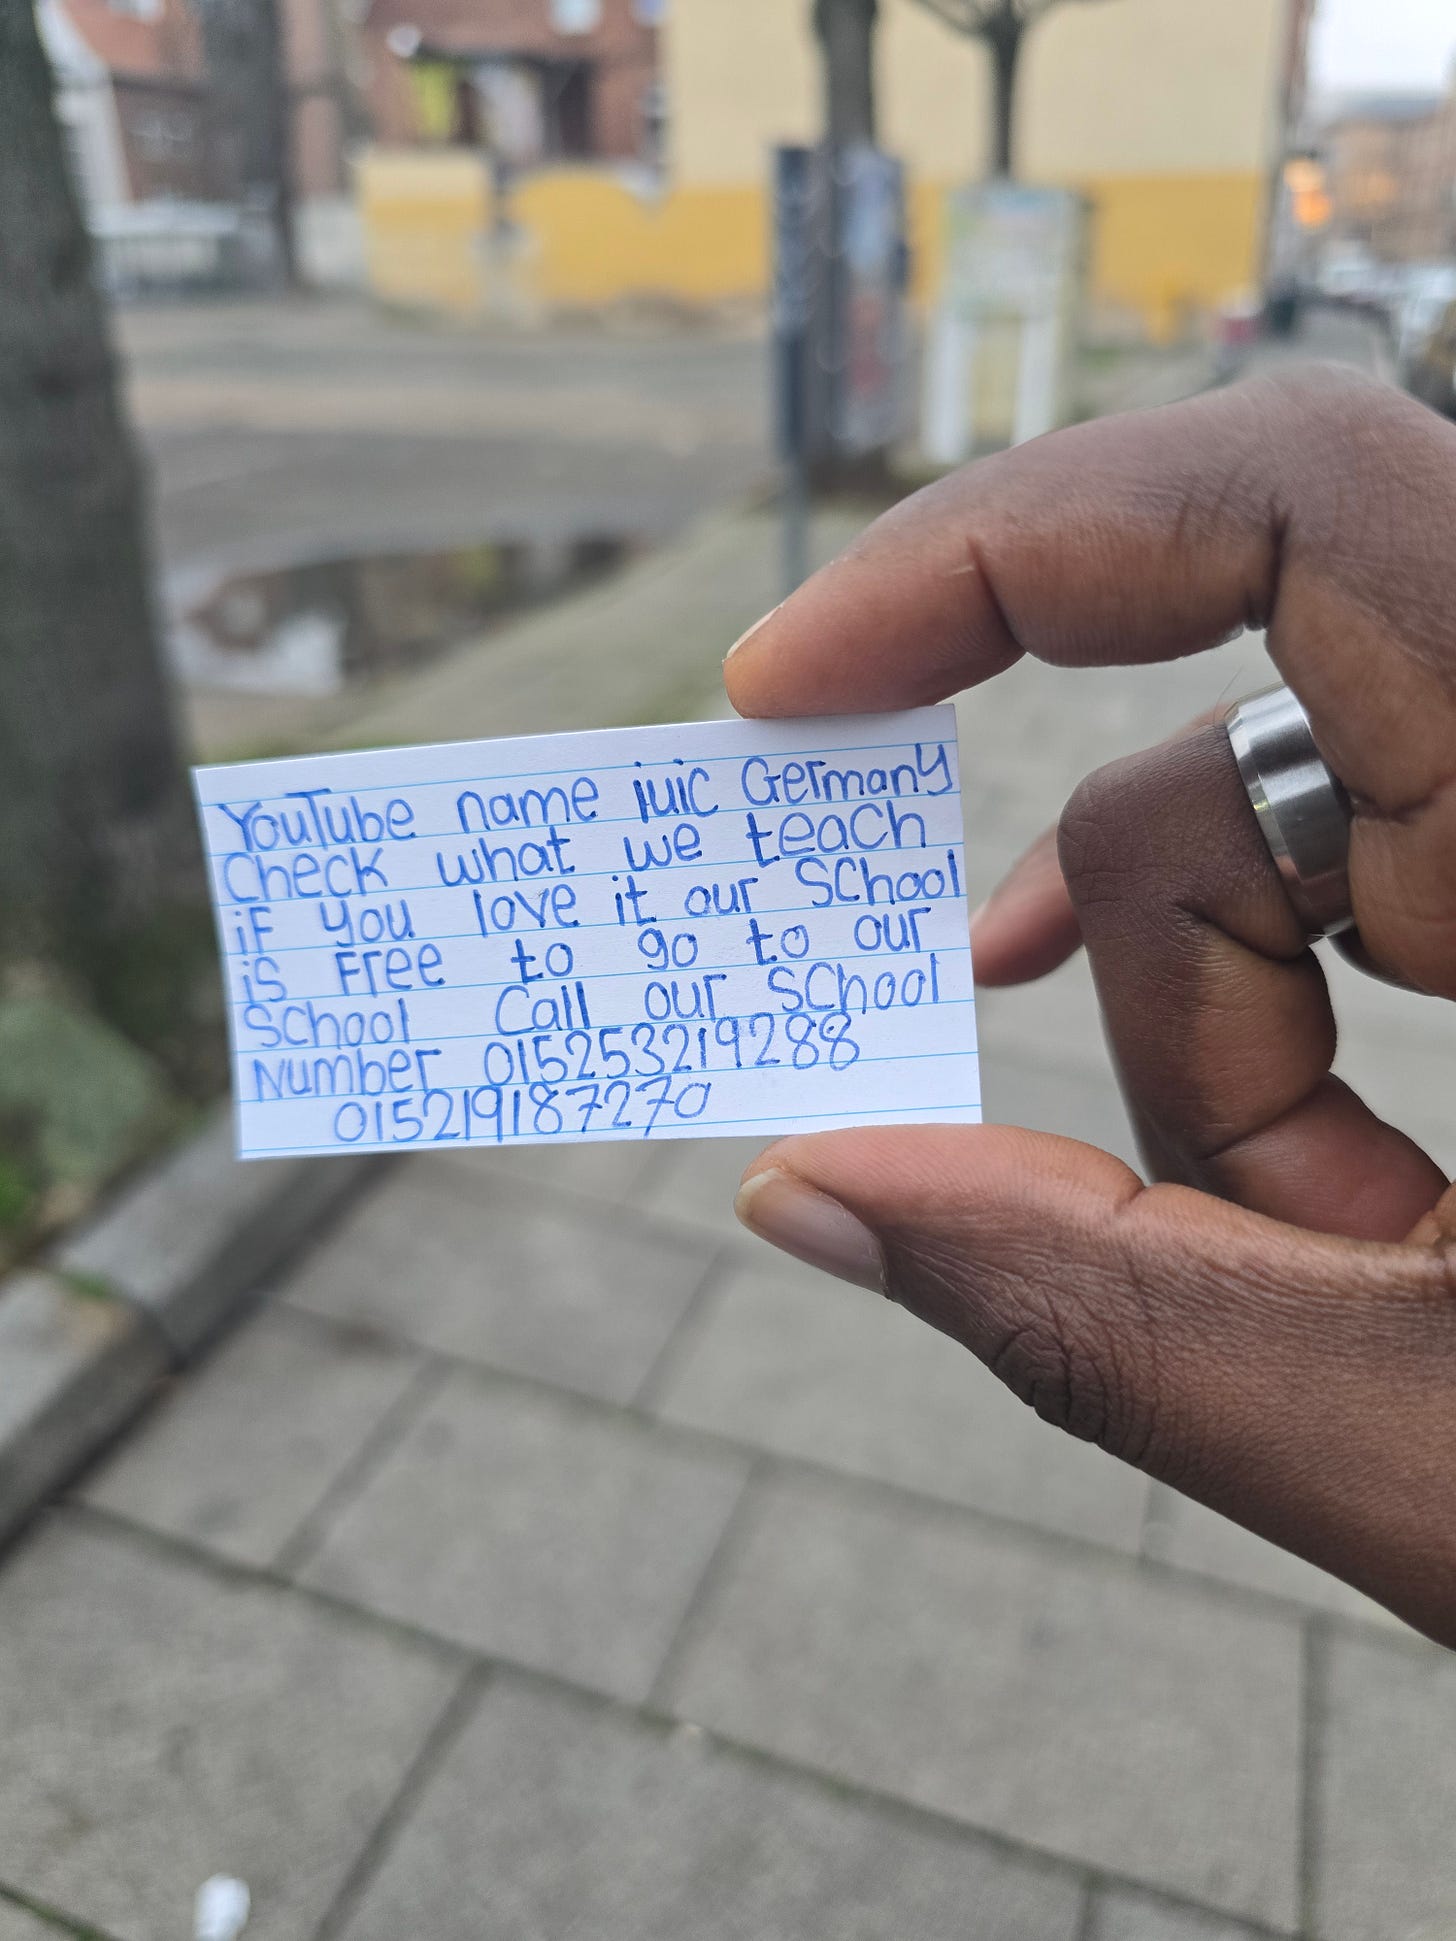 YouTube name iuic Germany
Check what we teach
if you love it our School
is Free to go to our
School Call our School
Number 015253219288
015219187270